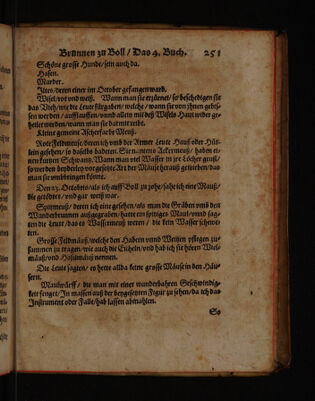 Brunnen zu Boll / Das 4. Buch. 251
Schöne grosse Hunde / sein auch da.
Hasen.
Marder.
Iltes / deren einer im October gefangen ward.
Wisel / rot und weiß. Wann man sie erzürnet / so beschädigen sie
das Vieh / wie die Leut fürgaben / welche / wann sie von jhnen gebis-
sen werden / aufflauffen / und allein mit deß Wisels Haut wider ge-
heilet werden / wann man sie darmit reibt.
Kleine gemeine Äscherfarbe Meuß.
Rote Feldmeuse / deren ich umb der Armer Leute Hauß oder Hüt-
lein gesehen / so daselbs badeten. Sie nennen Ackermeuß / haben ei-
nen kurtzen Schwantz. Wann man viel Wasser in jre Löcher geußt /
so werden dardurch
man sie umbbringen könte.
Den 23. Octobris / als ich auff Boll zu zohe / sahe ich eine Mauß /
die getödtet / und gar weiß war.
Spitzmeuß / deren ich eine gesehen / als man die Gräben umb den
Wunderbrunnen außgegraben / hatte ein spitziges Maul / und sag-
ten die Leut / das es Wassermeuß weren / die kein Wasser schewe-
ten.
Grosse Feldmäuß / welche den Habern und Weitzen pflegen zu-
sammen zu tragen / wie auch die Eicheln / und hab ich sie hören Wäl-
mäuß / und Haselmäuß nennen.
Die Leute sagten / es hette allda keine grosse Mäuse in den Häu-
sern.
Maulwürff / die man mit einer wunderbahren Geschwindig-
keit fenget / In massen auß der beygesetzten Figur zu sehen / da ich das
Instrument oder Falle / hab lassen abmahlen.
So